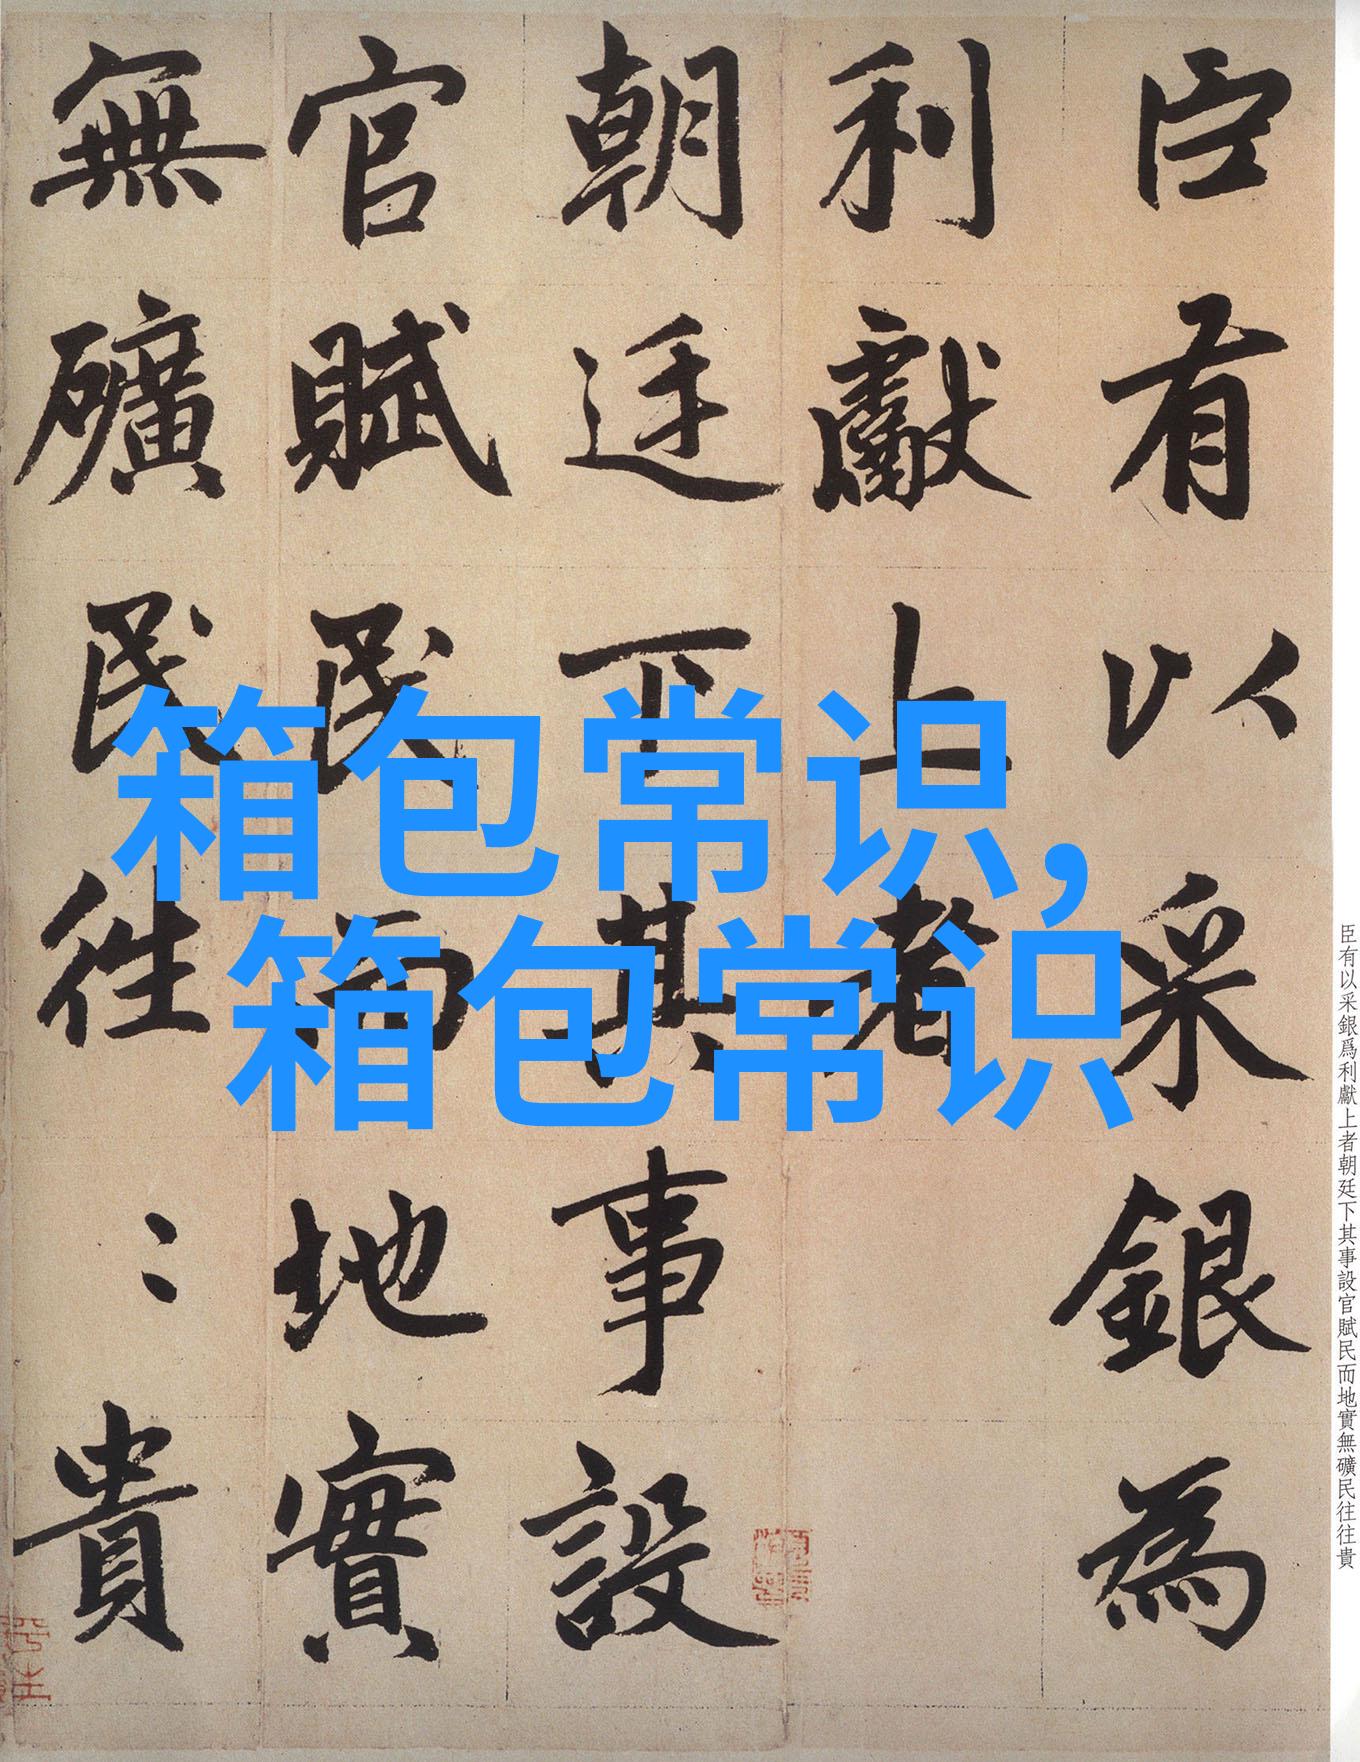 臣有以采銀為
利獻上者
朝廷下其事設
官賦民而地實
無礦民往〻貴
箱包常识,
箱包常识
臣有以采銀爲利獻上者朝廷下其事設官賦民而地實無礦民往往貴